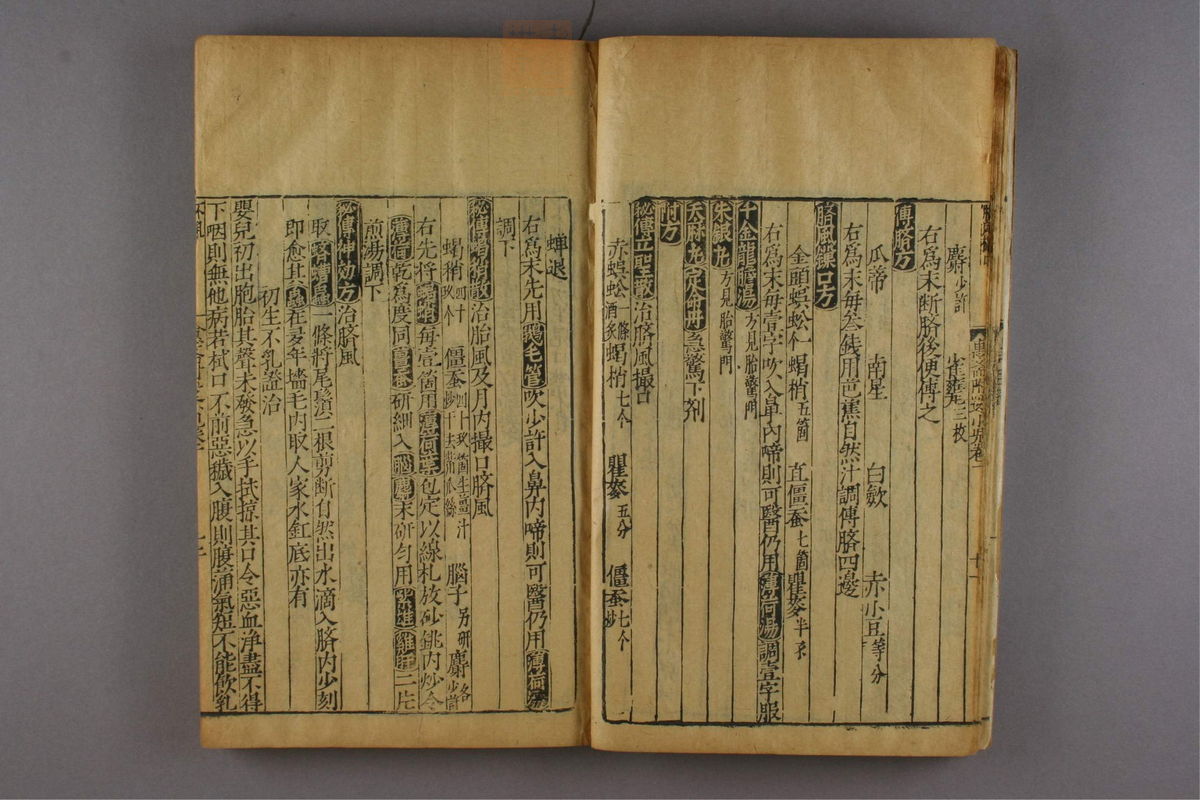 麝少許 雀甕三枚
右爲末断臍後便傅之
傅臍方
瓜蒂 南星 白歛 赤小豆等分
右爲末每叁錢用芭蕉自然汁調傅臍四邊
臍風鎖口方
金頭蜈蚣仁 蝎梢五箇 直僵蚕七箇 瞿麥半
右爲末每壹字吹入鼻内啼則可醫仍用薄荷湯調壹字服
千金龍膽湯方見胎驚門
朱銀丸方見胎驚門
天麻丸定命丹急驚下剂
附方
秘傳立聖散治臍風撮口
赤蜈蚣一條酒炙 蝎梢七个 瞿麥五分 僵蚕七个炒
蝉退
右爲末先用鵝毛管吹少許入鼻内啼則可醫仍用薄荷湯
調下
秘傳蝎梢散治胎風及月内撮口臍風
蝎梢四十玖个 僵蚕四十玖箇生薑汁炒干去 腦子另研 麝少許
右先將蝎梢每壹箇用薄荷葉包定以線札放砂銚内炒令
薄荷乾爲度同薑蚕研細入腦麝末研勻用紫雄雞肝二片
煎湯調下
秘傳神効方治臍風
取一條將尾鬚二根剪断自然出水滴入臍内少刻
即愈其在多年墻毛内取人家水缸底亦有
初生不乳證治
嬰兒初出胞胎其聲未發急以手拭掠其口令惡血净盡不得
下咽則無他病若拭口不前惡穢入腹則腹滿氣短不能飲乳